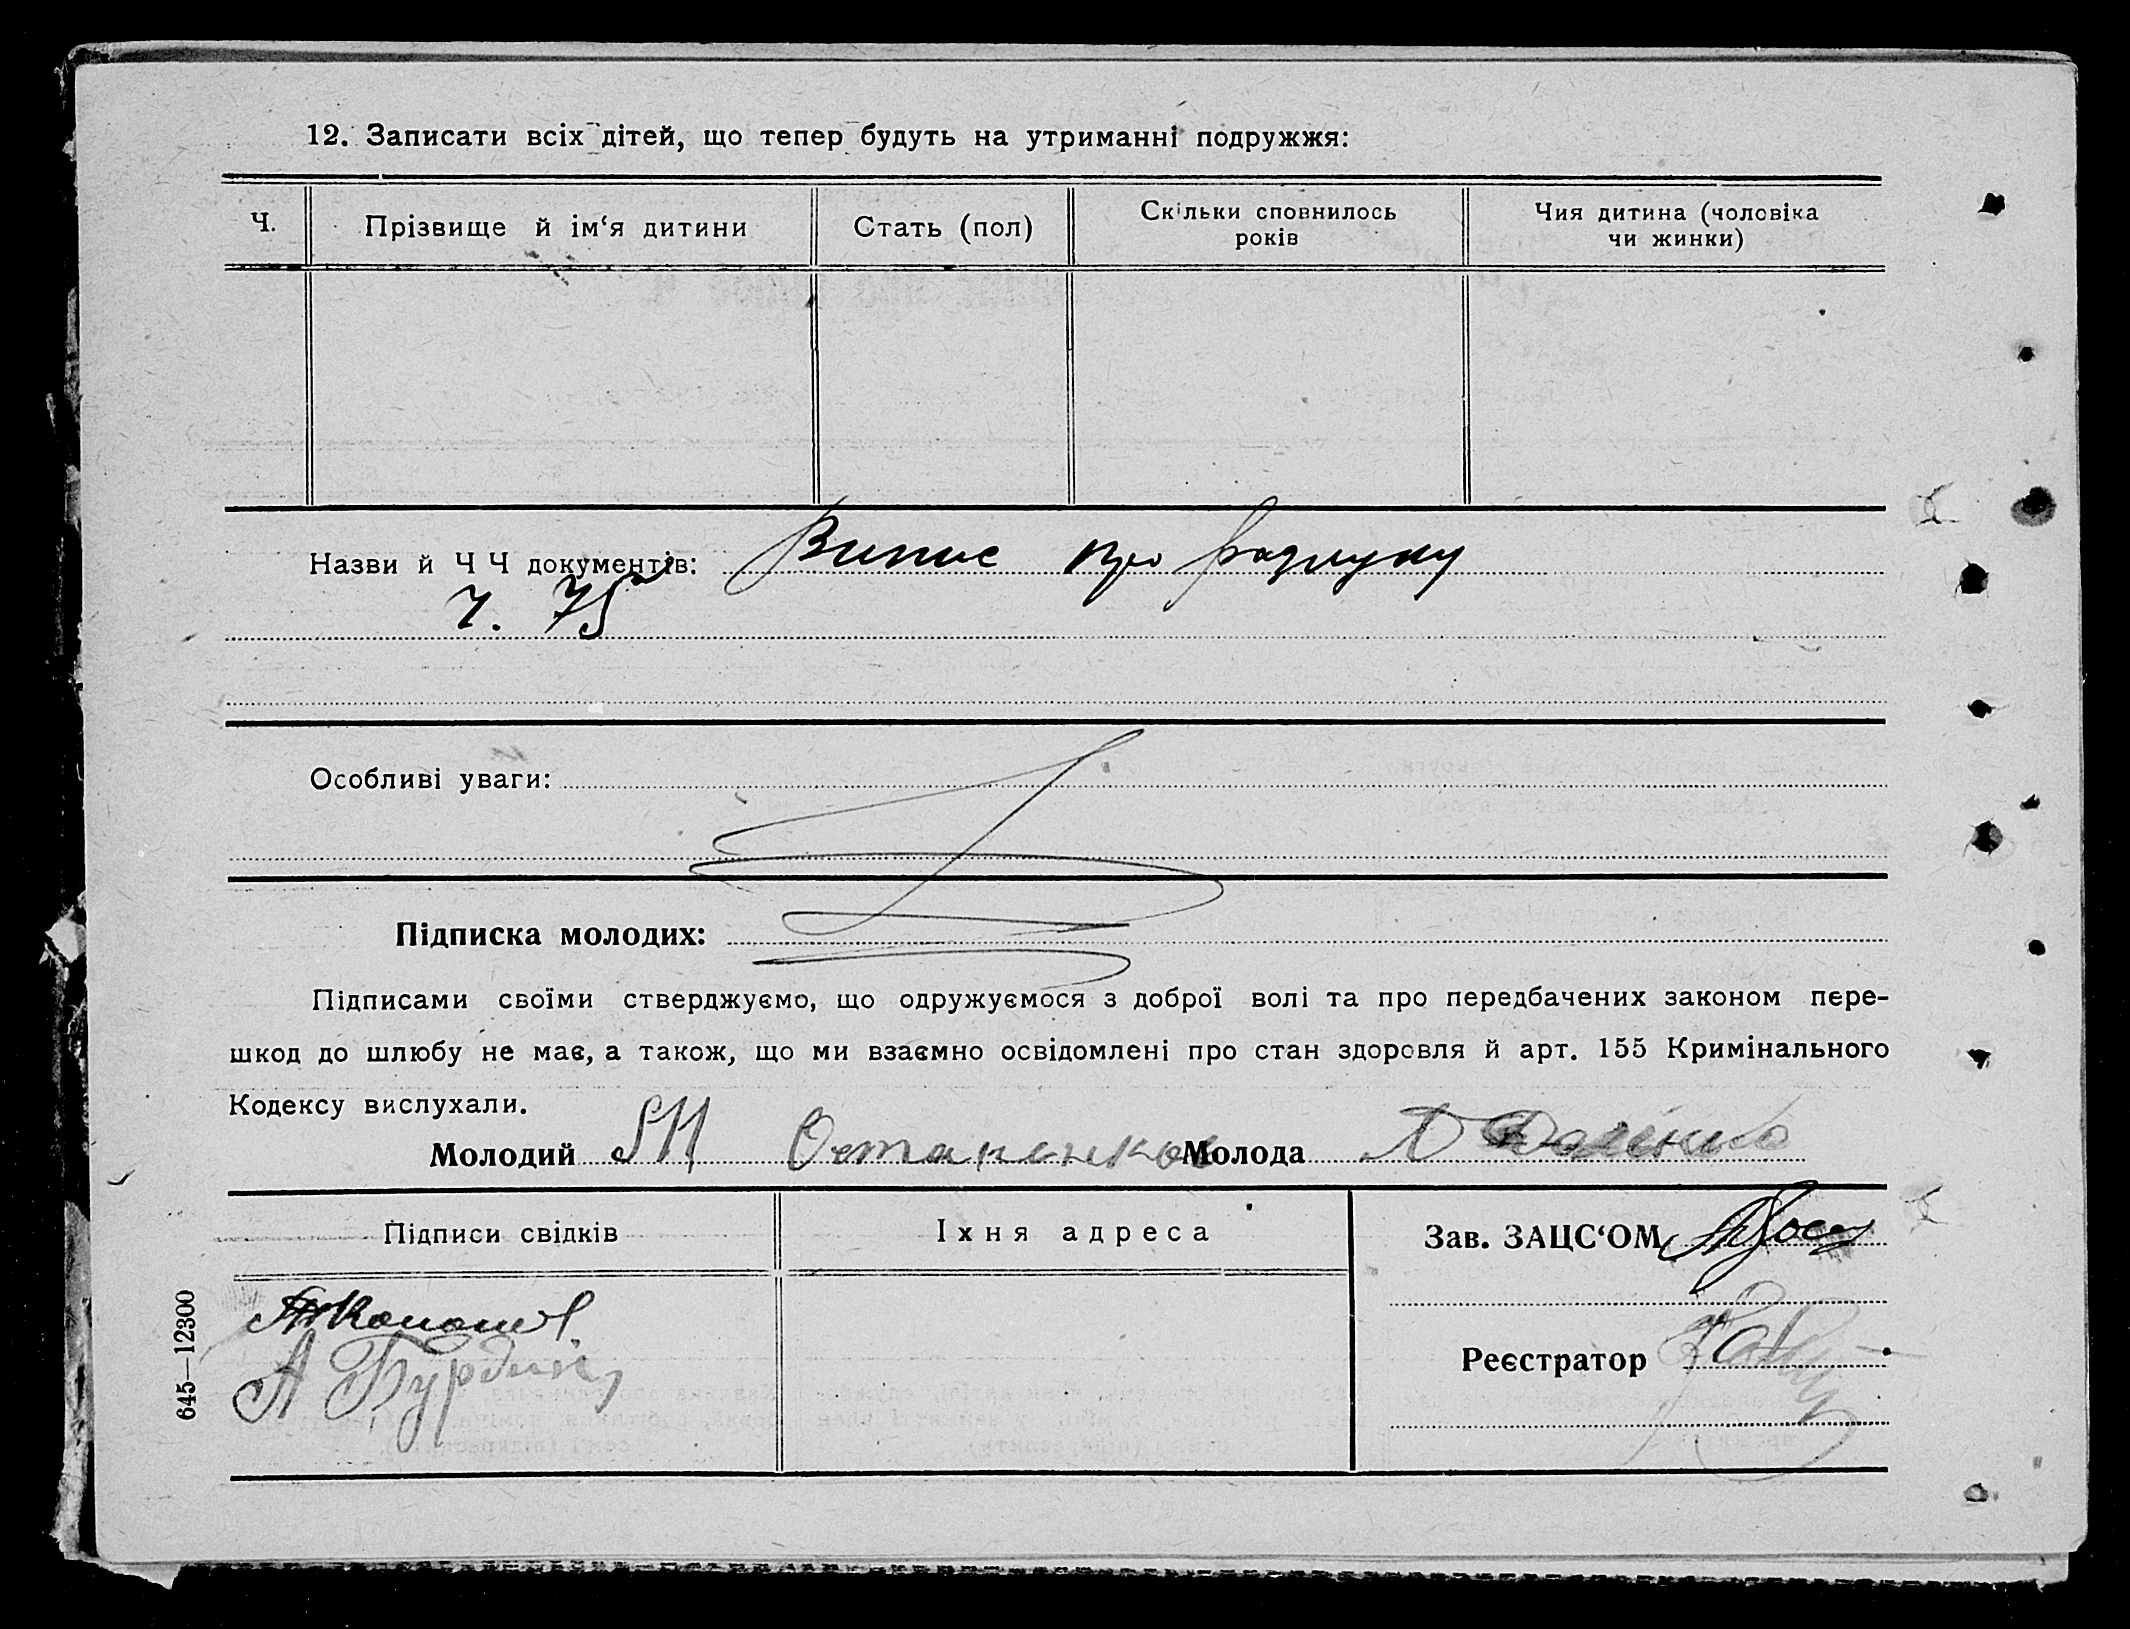 12. Записати всіх дітей, що тепер будуть на утриманні подружжя:
Ч.
Прізвище й ім‘я дитини
Стать (пол)
Скільки сповнилось
років
Чия дитина (чоловіка
чи жинки)
Назви й Ч Ч документів: Випис про
ч. 75
Особливі уваги:
Підписка молодих:
Підписами своїми стверджуємо, що одружуємося з доброї волі та про передбачених законом пере-
шкод до шлюбу не має, а також, що ми взаємно освідомлені про стан здоровля й арт. 155 Кримінального
Кодексу вислухали.
Молодий Остапенко Молода
Підписи свідків
Їхня адреса
Зав. ЗАЦС‘ОМ
А Бурдик
Реєстратор
645—12300